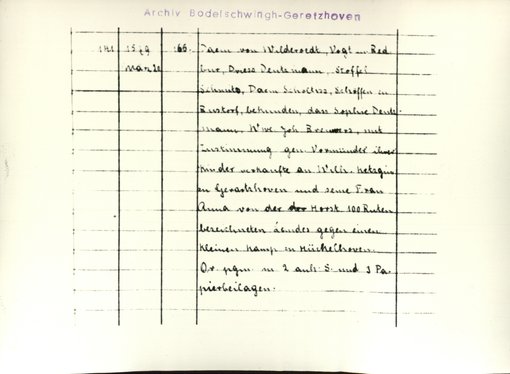 Archiv Bodelschwingh-Geretzhoven
Daem von Wilderoedt, Vogt in Bed
bur, Driess Dentzmann, Stoffel
Schmitz, Daem Scholtiss, Schoffen in
Rustorf, bekunden, das Sophie Dentz
mann, Wwe Joh. Brewers, mit
Zustimmung gen. Vormünder ihrer
Kinder verkaufte an Wilh. Ketzgin
zu Geraitzhoven und seine Frau
Anna von der Horst 100 Ruten
bezeichneten Landes gegen einen
kleinen Kamp in Hückelhoven.
Or. pgm. m. 2 anh. S. und 3 Pa-
pierbeilagen.